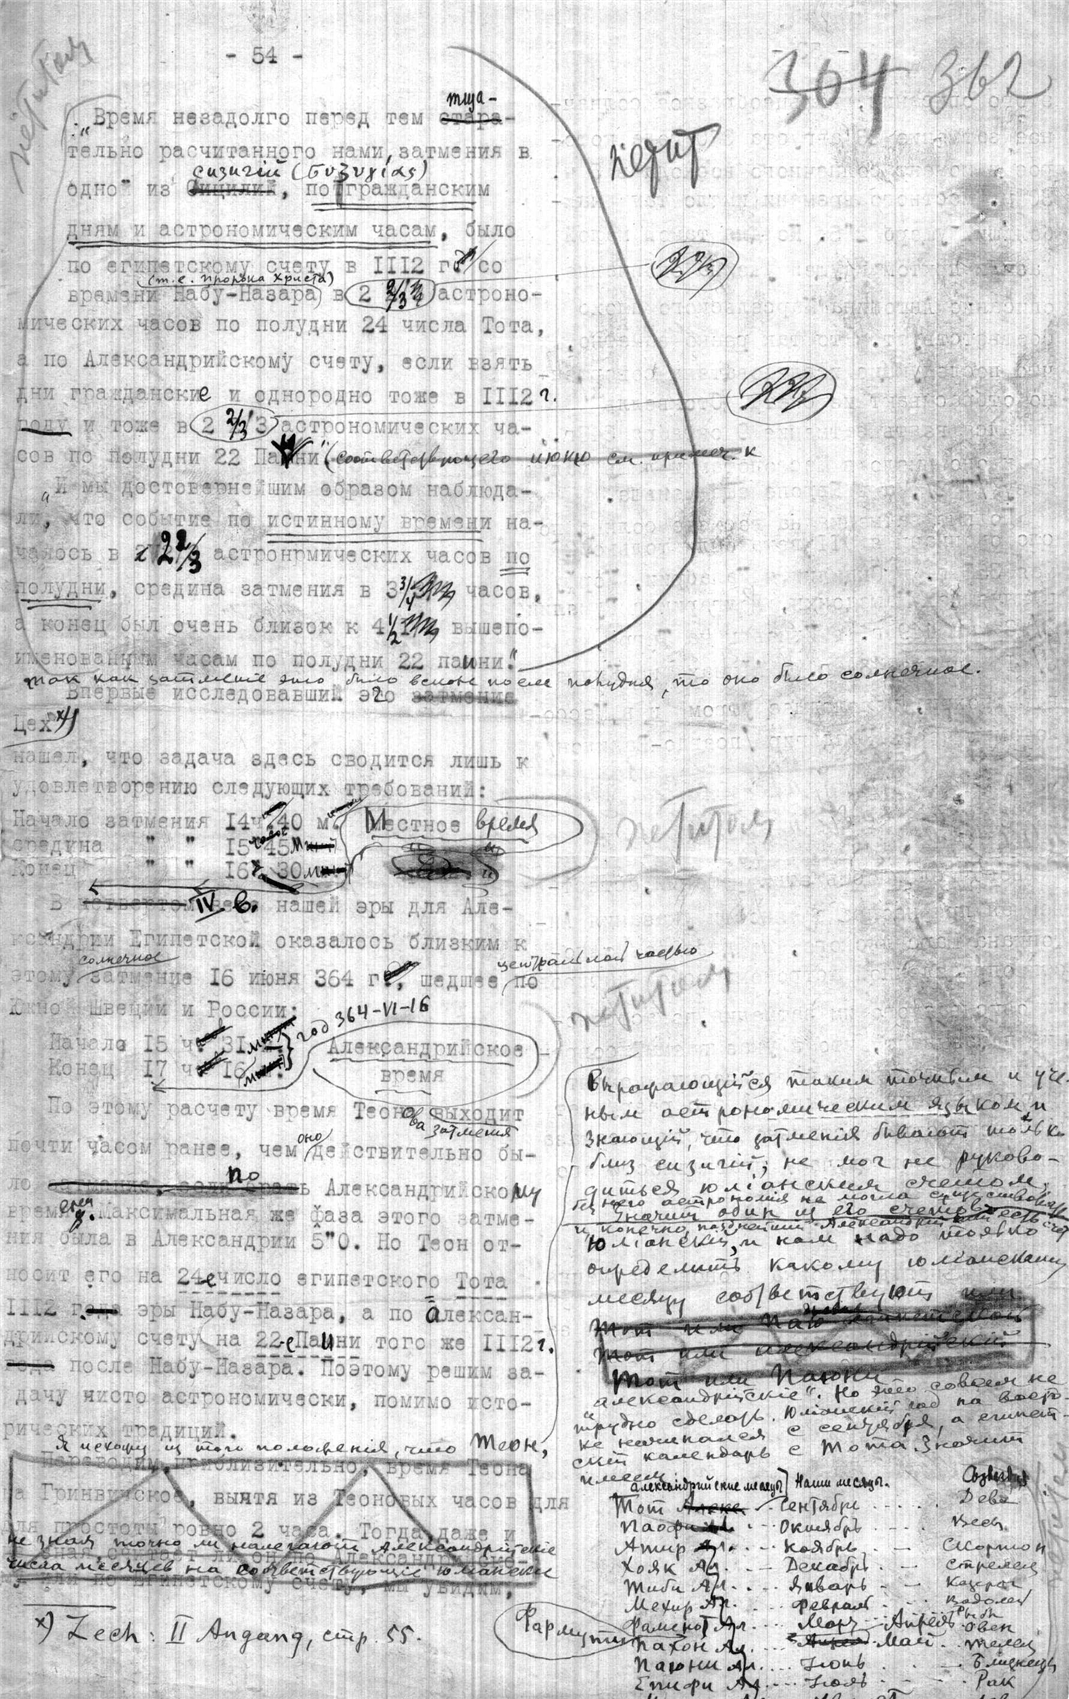 - 54 -
364 362
петитом
тща-
„Время незадолго перед тем стара-
тельно расчитанного нами затмения в
сизигий (Συζυγίας)
одно" из Сицилий, по гражданским
дням и астрономическим часам, было
по египетскому счету в III2 г со
(т.е. пророка Христа)
времени Набу-Назара в 2 2/3 астроно-
мических часов по полудни 24 числа Тота,
а по Александрийскому счету, если взять
дни гражданские и однородно тоже в III2 г.
году и тоже в 2 2/3 астрономических ча-
сов по полудни 22 Паини" (соответствующего июню см. примеч. к
„И мы достовернейшим образом наблюда-
ли, что событие по истинному времени на-
чалось в 2 2/3 астронрмических часов по
полудни, средина затмения в 3 3/4 часов,
а конец был очень близок к 4 1/2 вышепо-
именованным часам по полудни 22 паини."
петит
Так как затмение это было вскоре после полудня, то оно было солнечное.
Впервые исследовавший это затмение
Цех x)
нашел, что задача здесь сводится лишь к
удовлетворению следующих требований:
Начало затмения 14 ч 40 м Местное время
средина " " 15 45 м " "
Конец " " 16 30 м "
петитом
В четвертом веке IV в. нашей эры для Але-
ксандрии Египетской оказалось близким к
солнечное
этому затмение 16 июня 364 г., шедшее по
центральной частью
Южной Швеции и России:
год 364-VI-16
Начало 15 ч 31 Александрийское
Конец 17 ч 16 время
петитом
По этому расчету время Теонова выходит
затмения
почти часом ранее, чем оно действительно бы-
ло по Александрийскому
времени. Максимальная же фаза этого затме-
ния была в Александрии 5"0. Но Теон от-
носит его на 24е число египетского Тота
III2 г. эры Набу-Назара, а по Алексан-
дрийскому счету на 22-е Паини того же III2 г.
года после Набу-Назара. Поэтому решим за-
дачу чисто астрономически, помимо исто-
рических традиций.
Я исхожу из того положения, что Теон,
Переводим, приблизительно, время Теона
на Гринвичское, вычтя из Теоновых часов для
для простоты ровно 2 часа. Тогда даже и
не зная точно ли налегают Александрийские
числа месяцев на соответствующие юлиански
по Египетскому счету, мы увидим,
x) Zech: II Angang, стр. 55.
Выражающийся таким точным и уче-
ным астрономическим языком и
знающий, что затмения бывают только
близ сизигий, не мог не руково-
диться юлианским счетом.
без него астрономия не могла существовать
Значит один из его счетов
и конечно, позднейший Александрийский есть счет
Юлианский, и нам надо только
определить какому юлианскому
месяцу соответствуют или
Тот или Паюни
александрийские". Но это совсем не
трудно сделать. Юлианский год на восто-
ке начинался с сентября, а египет-
ский календарь с Тота Значит
имеем
александрийские месяцы Наши месяцы. Созвездия
Тот Сентябрь Дева
Паофи Октябрь Весы
Атир Ал. Ноябрь Скорпион
Хояк Ал. Декабрь Стрелец
Тиби Ал. Январь Козерог
Мехир Ал. Февраль Водолей
Фаменот Ал. Март Рыбы
Фармути Апрель Овен
Пахон Ал. Май Телец
Паюни Ал. Июнь Близнецы
Епифи Ал. Июль Рак